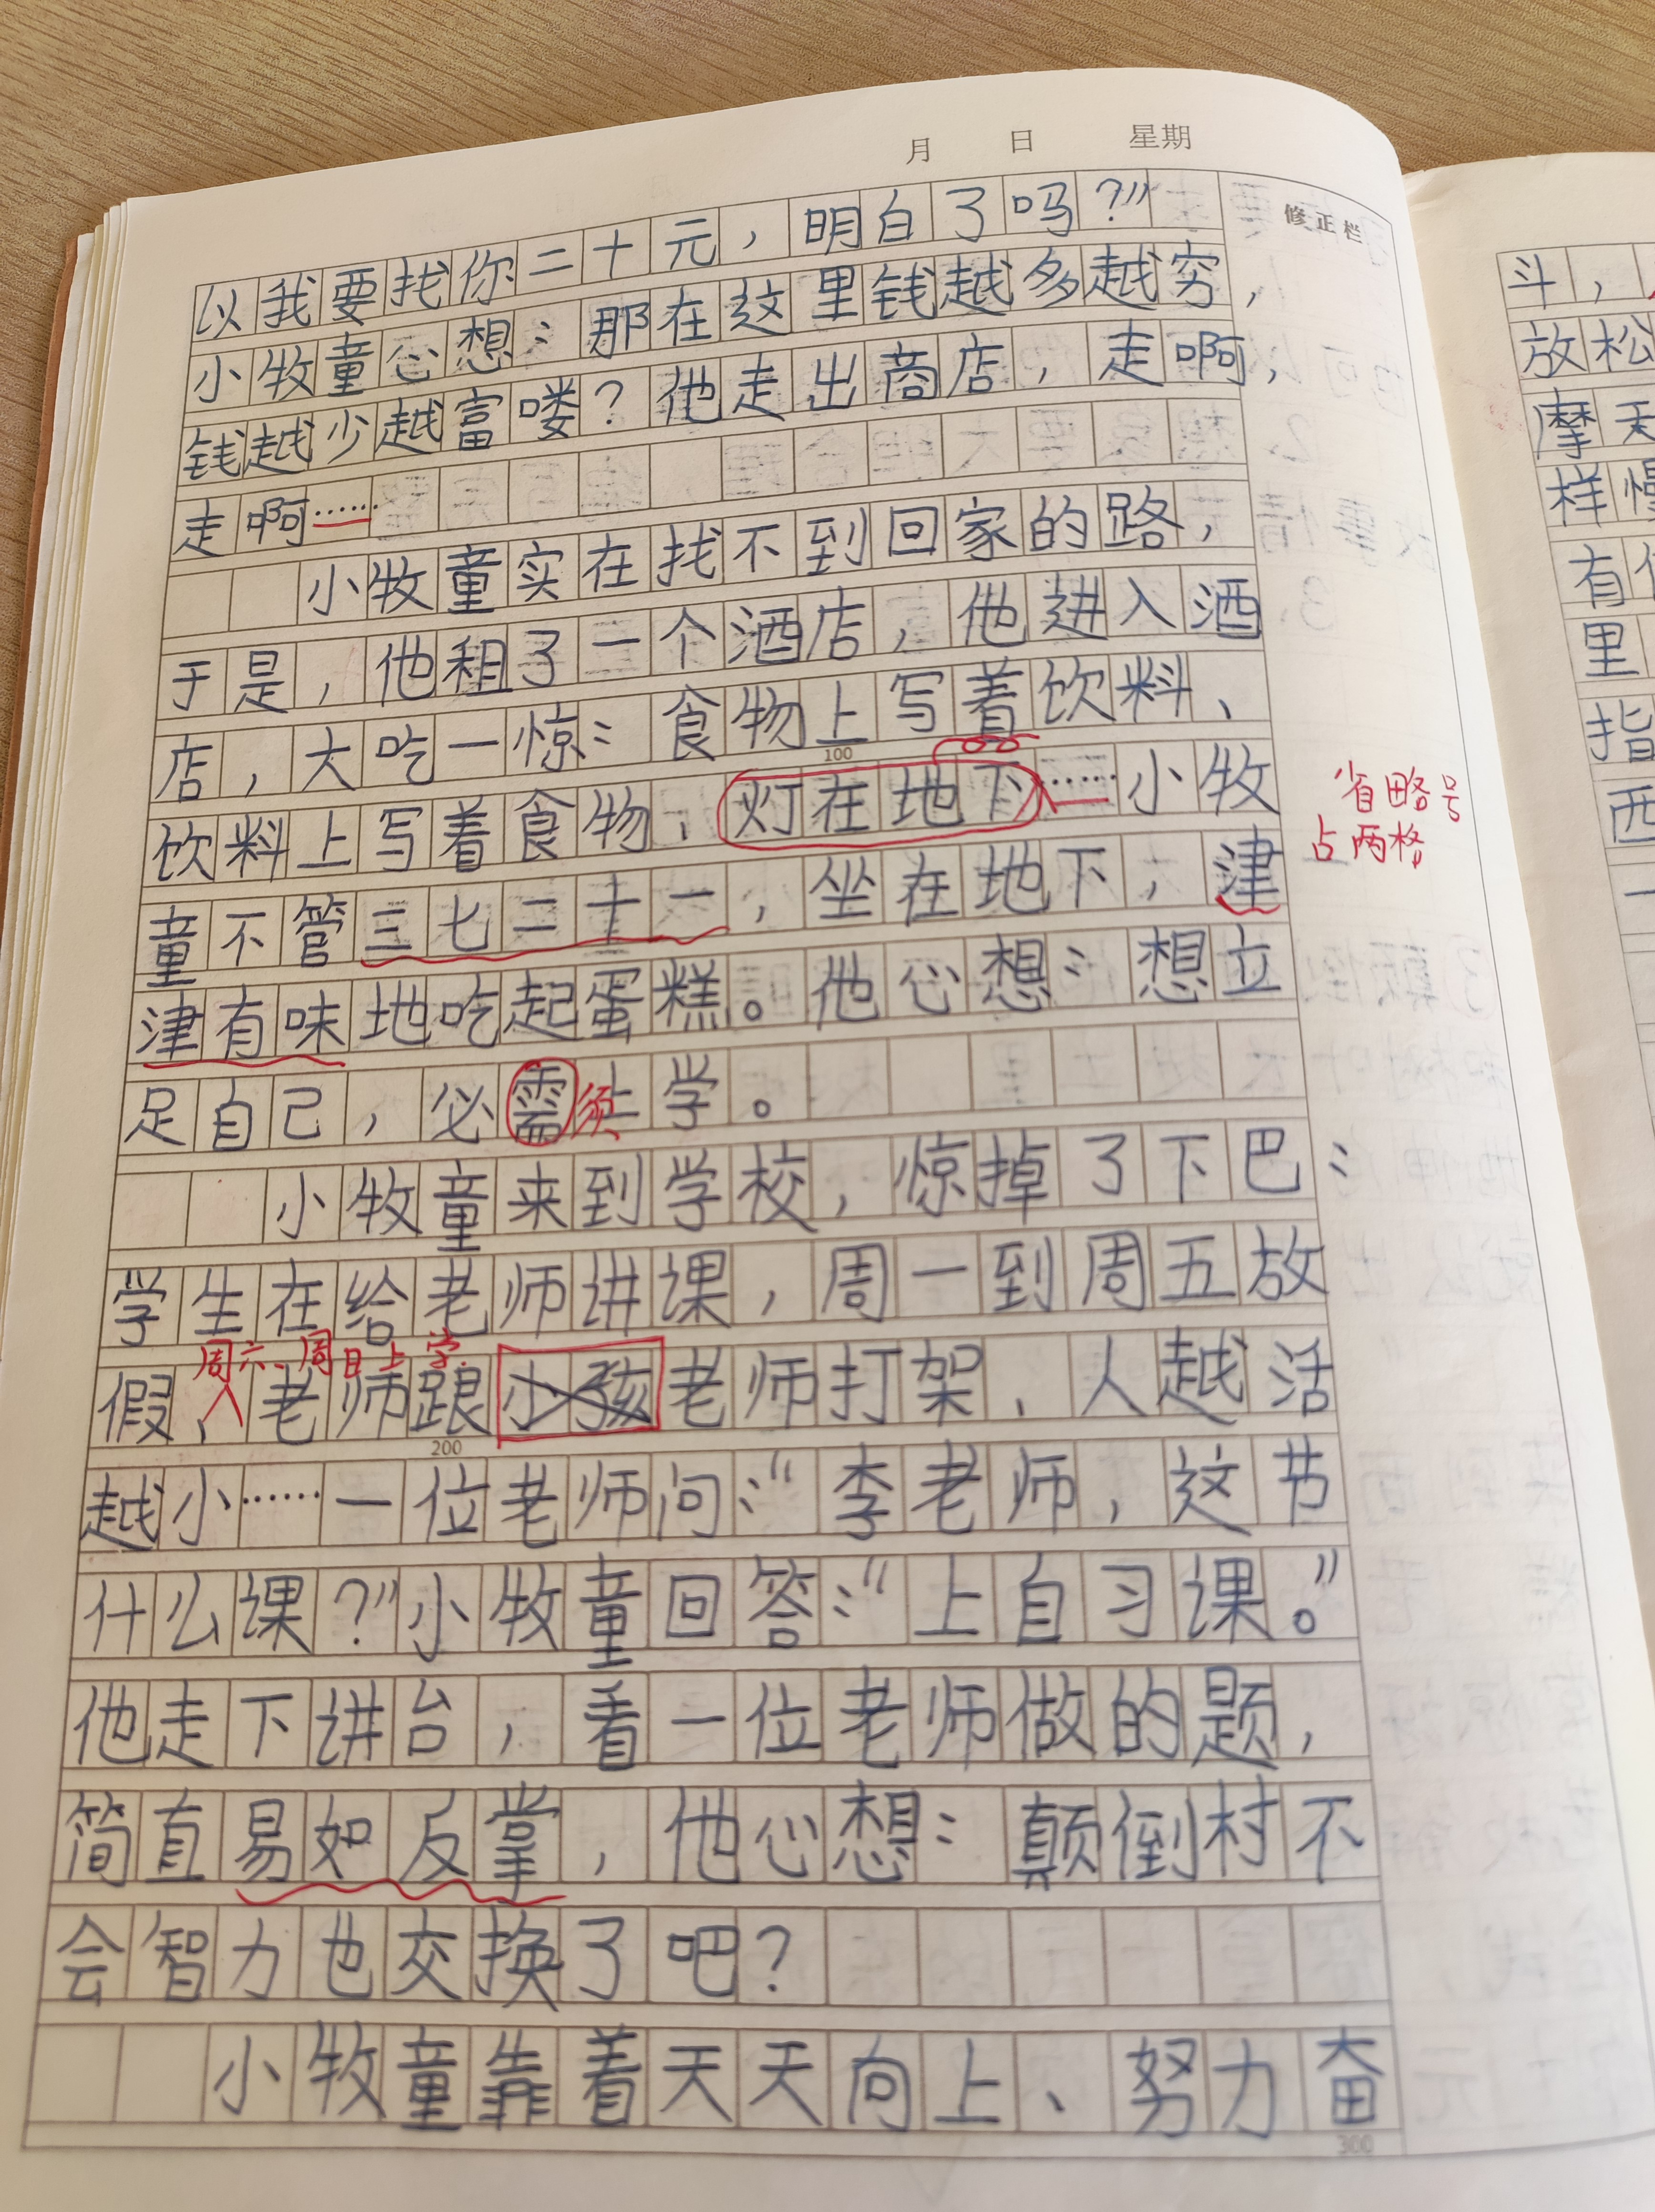 月 日 星期
修正栏
以我要找你二十元，明白了吗？”
小牧童心想：那在这里钱越多越穷，
钱越少越富喽？他走出商店，走啊，
走啊……
小牧童实在找不到回家的路，
于是，他租了一个酒店，他进入酒
店，大吃一惊：食物上写着饮料、
100
饮料上写着食物、灯在地下……小牧
省略号
占两格
童不管三七二十一，坐在地下，津
津有味地吃起蛋糕。他心想：想立
足自己，必需上学。
须
小牧童来到学校，惊掉了下巴：
学生在给老师讲课，周一到周五放
周六、周日上学.
假、老师跟小孩老师打架、人越活
200
越小……一位老师问：“李老师，这节
什么课？”小牧童回答：“上自习课。”
他走下讲台，看一位老师做的题，
简直易如反掌，他心想：颠倒村不
会智力也交换了吧？
小牧童靠着天天向上、努力奋
300
斗，
放松
摩天
样慢
有
里
指
西
一